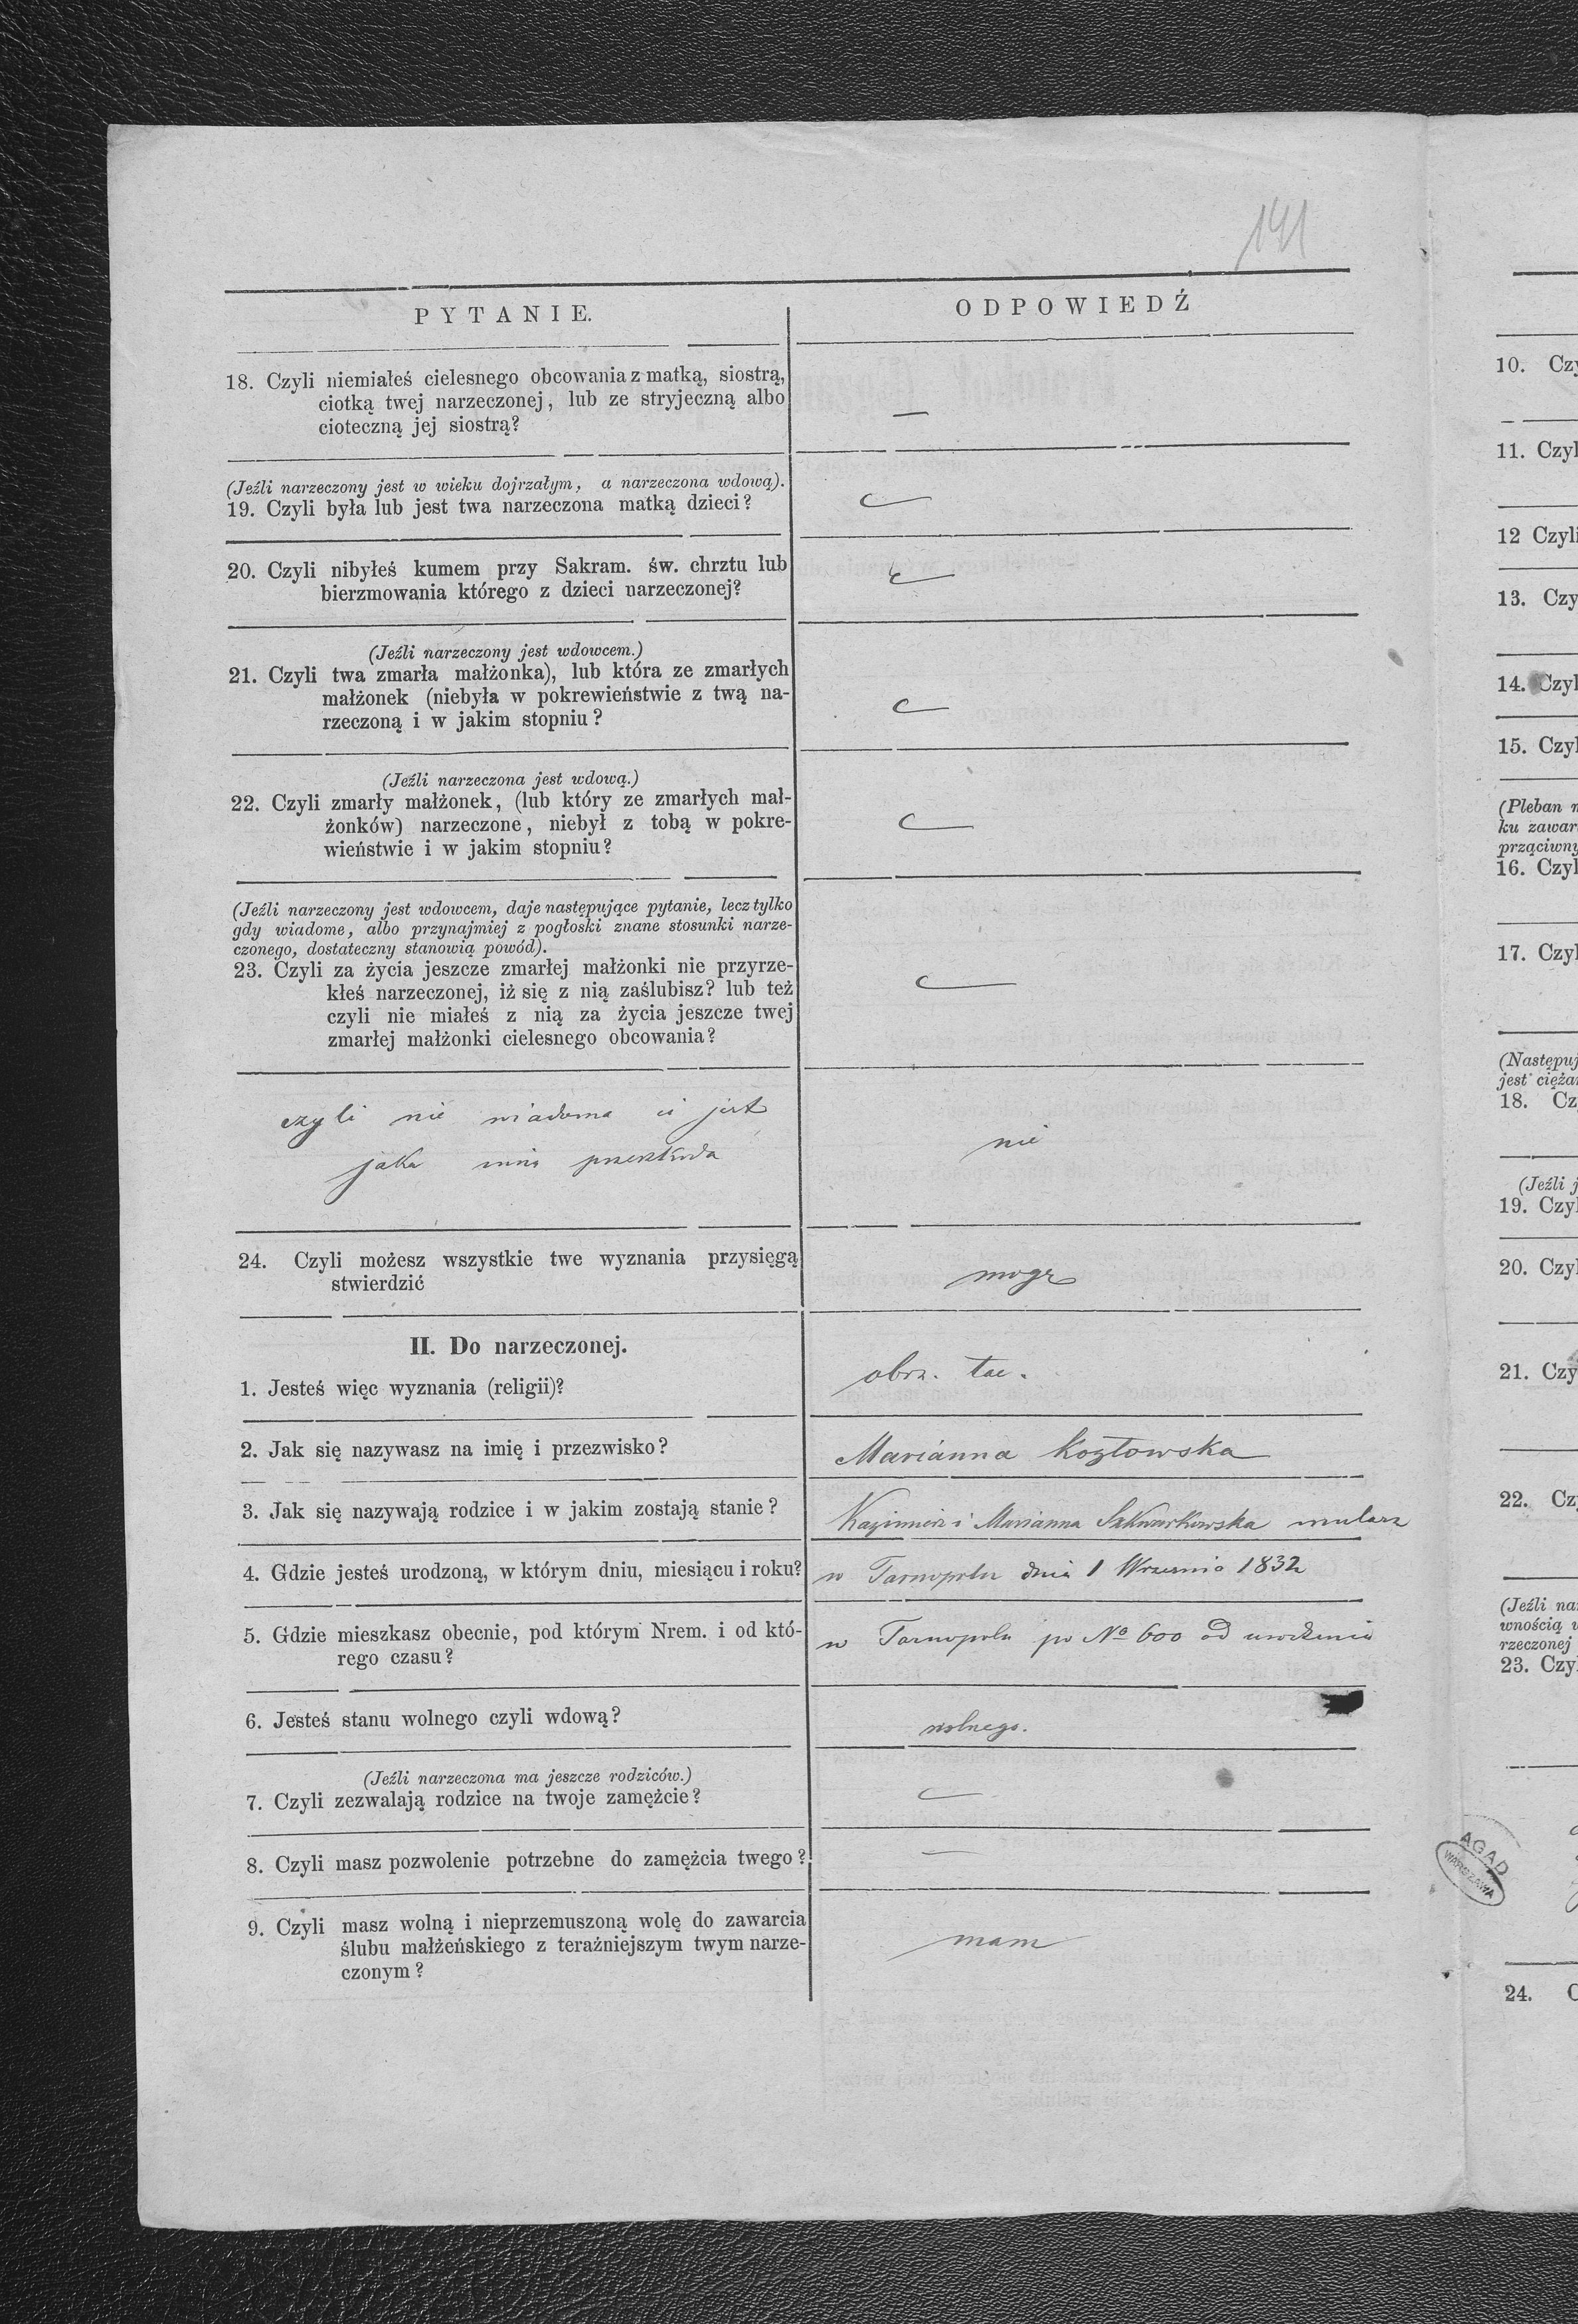 141
PYTANIE.
ODPOWIEDŹ
18. Czyli niemiałeś cielesnego obcowania z matką, siostrą,
ciotką twej narzeczonej, lub ze stryjeczną albo
cioteczną jej siostrą?
—
(Jeźli narzeczony jest w wieku dojrzałym, a narzeczona wdową).
19. Czyli była lub jest twa narzeczona matką dzieci?
20. Czyli nibyłeś kumem przy Sakram. św. chrztu lub
bierzmowania którego z dzieci narzeczonej?
(Jeźli narzeczony jest wdowcem.)
21. Czyli twa zmarła małżonka), lub która ze zmarłych
małżonek (niebyła w pokrewieństwie z twą na-
rzeczoną i w jakim stopniu?
(Jeźli narzeczona jest wdową.)
22. Czyli zmarły małżonek, (lub który ze zmarłych mał-
żonków) narzeczone, niebył z tobą w pokre-
wieństwie i w jakim stopniu?
(Jeźli narzeczony jest wdowcem, daje następujące pytanie, lecz tylko
gdy wiadome, albo przynajmiej z pogłoski znane stosunki narze-
czonego, dostateczny stanowią powód).
23. Czyli za życia jeszcze zmarłej małżonki nie przyrze-
kłeś narzeczonej, iż się z nią zaślubisz? lub też
czyli nie miałeś z nią za życia jeszcze twej
zmarłej małżonki cielesnego obcowania?
czyli nie wiadoma ci jest
jaka inna przeszkoda
nie
24. Czyli możesz wszystkie twe wyznania przysięgą
stwierdzić
mogę
II. Do narzeczonej.
1. Jesteś więc wyznania (religii)?
obrz. łac.
2. Jak się nazywasz na imię i przezwisko?
Marianna Kozłowska
3. Jak się nazywają rodzice i w jakim zostają stanie?
Kazimierz i Marianna Szkwarkowska mularz
4. Gdzie jesteś urodzoną, w którym dniu, miesiącu i roku?
w Tarnopolu dnia 1 Września 1832
5. Gdzie mieszkasz obecnie, pod którym Nrem. i od któ-
rego czasu?
w Tarnopolu po No 600 od urodzenia
6. Jesteś stanu wolnego czyli wdową?
wolnego.
(Jeźli narzeczona ma jeszcze rodziców.)
7. Czyli zezwalają rodzice na twoje zamężcie?
8. Czyli masz pozwolenie potrzebne do zamężcia twego?
—
9. Czyli masz wolną i nieprzemuszoną wolę do zawarcia
ślubu małżeńskiego z teraźniejszym twym narze-
czonym?
mam
10. Czy
11. Czyl
12 Czyli
13. Czy
14. Czyl
15. Czyl
(Pleban
ku zawar
prząciwny
16. Czyl
17. Czyl
(Następuj
jest cięża
18. Cz
(Jeźli j
19. Czyl
20. Czyl
21. Czy
22. Cz
(Jeźli na
wnością
rzeczonej
23. Czyl
AGAD
WARSZAWA
24. C